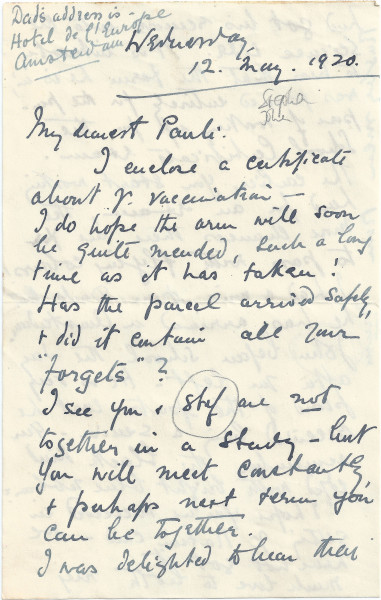 Dad's address is -
Hotel de l'Europe
Amsterdam
Wednesday,
12. May. 1920.
Stephen
My dearest Pauli.
I enclose a certificate
about yr vaccination -
I do hope the arm will soon
be quite mended, such a long
time as it has taken!
Has the parcel arrived safely,
& did it contain all your
"forgets"?
I see you & Stef are not
together in a study - but
you will meet constantly,
& perhaps next term you
can be together.
I was delighted to hear that